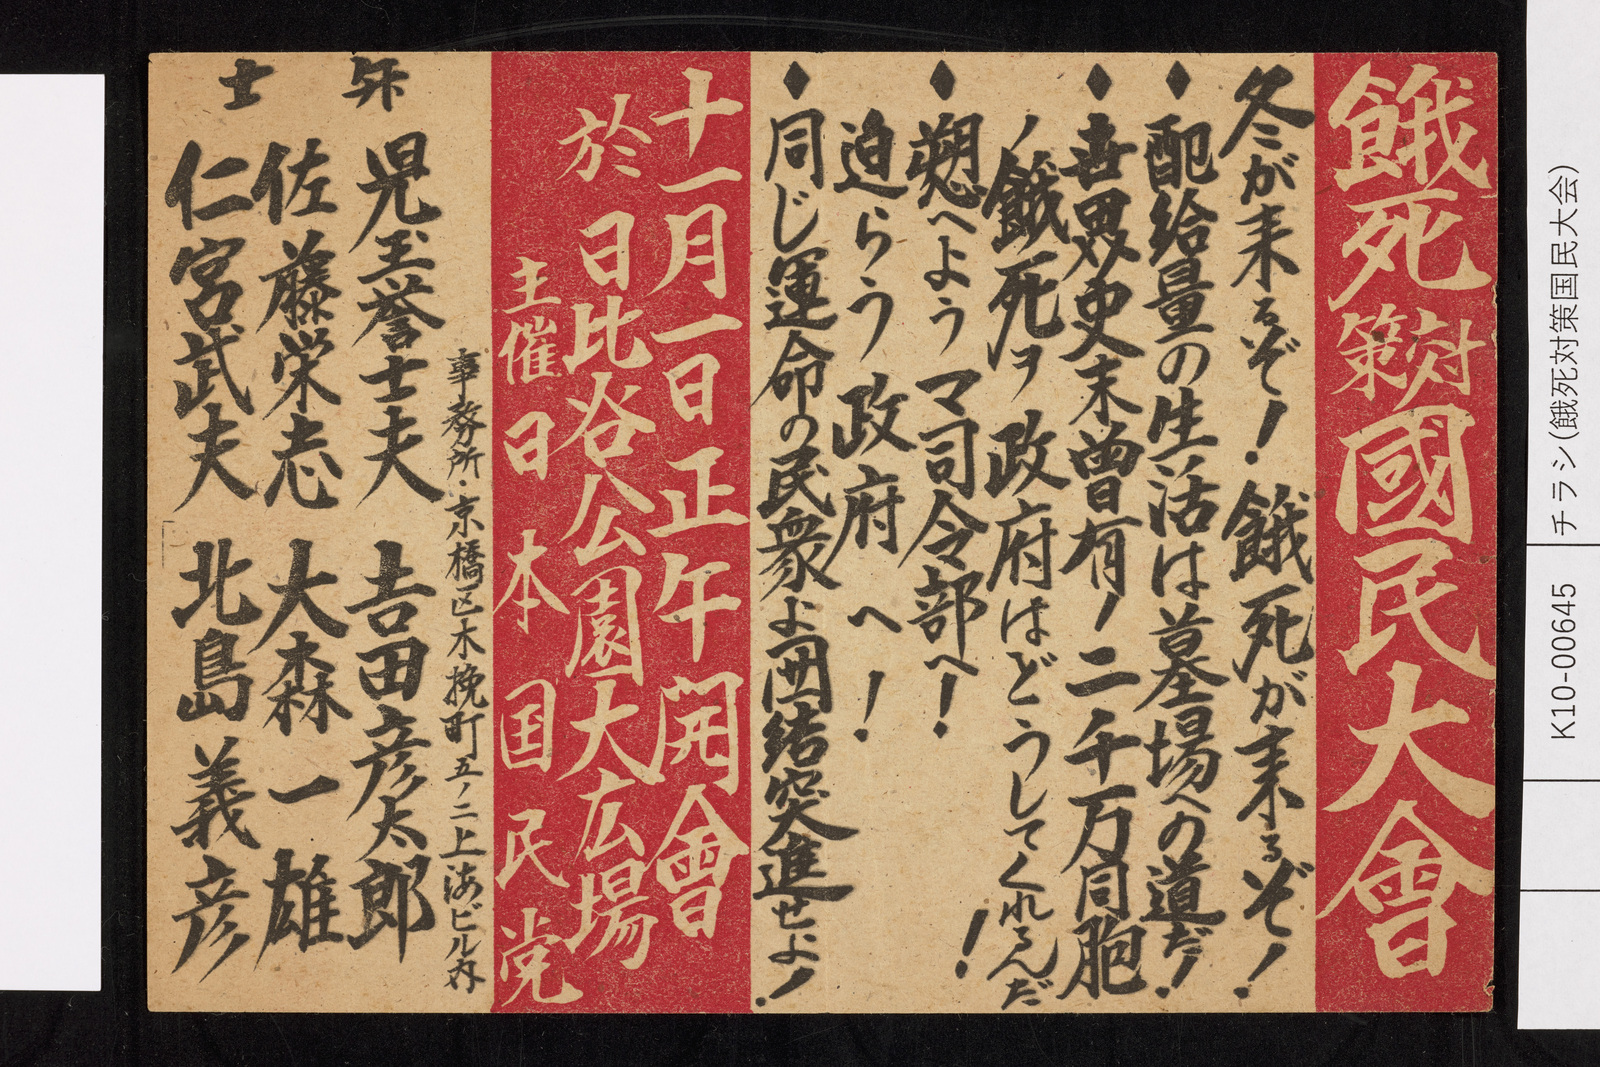 餓死対策國民大會
冬が来るぞ!餓死が来るぞ!
◆配給量の生活は墓場への道だ!
◆世界史末曽有ノ二千万同胞
ノ餓死ヲ政府はどうしてくれるんだ!
◆愬へようマ司令部へ!
迫らう政府へ!
◆同じ運命の民衆よ団結突進せよ!
十一月一日正午開會
於日比谷公園大広場
主催日本国民党
事務所・京橋区木挽町五ノ二上海ビル内
弁士
児玉誉士夫 吉田彦太郎
佐藤栄志 大森一雄
仁宮武夫 北島義彦
チラシ(餓死対策国民大会)
K10-00645